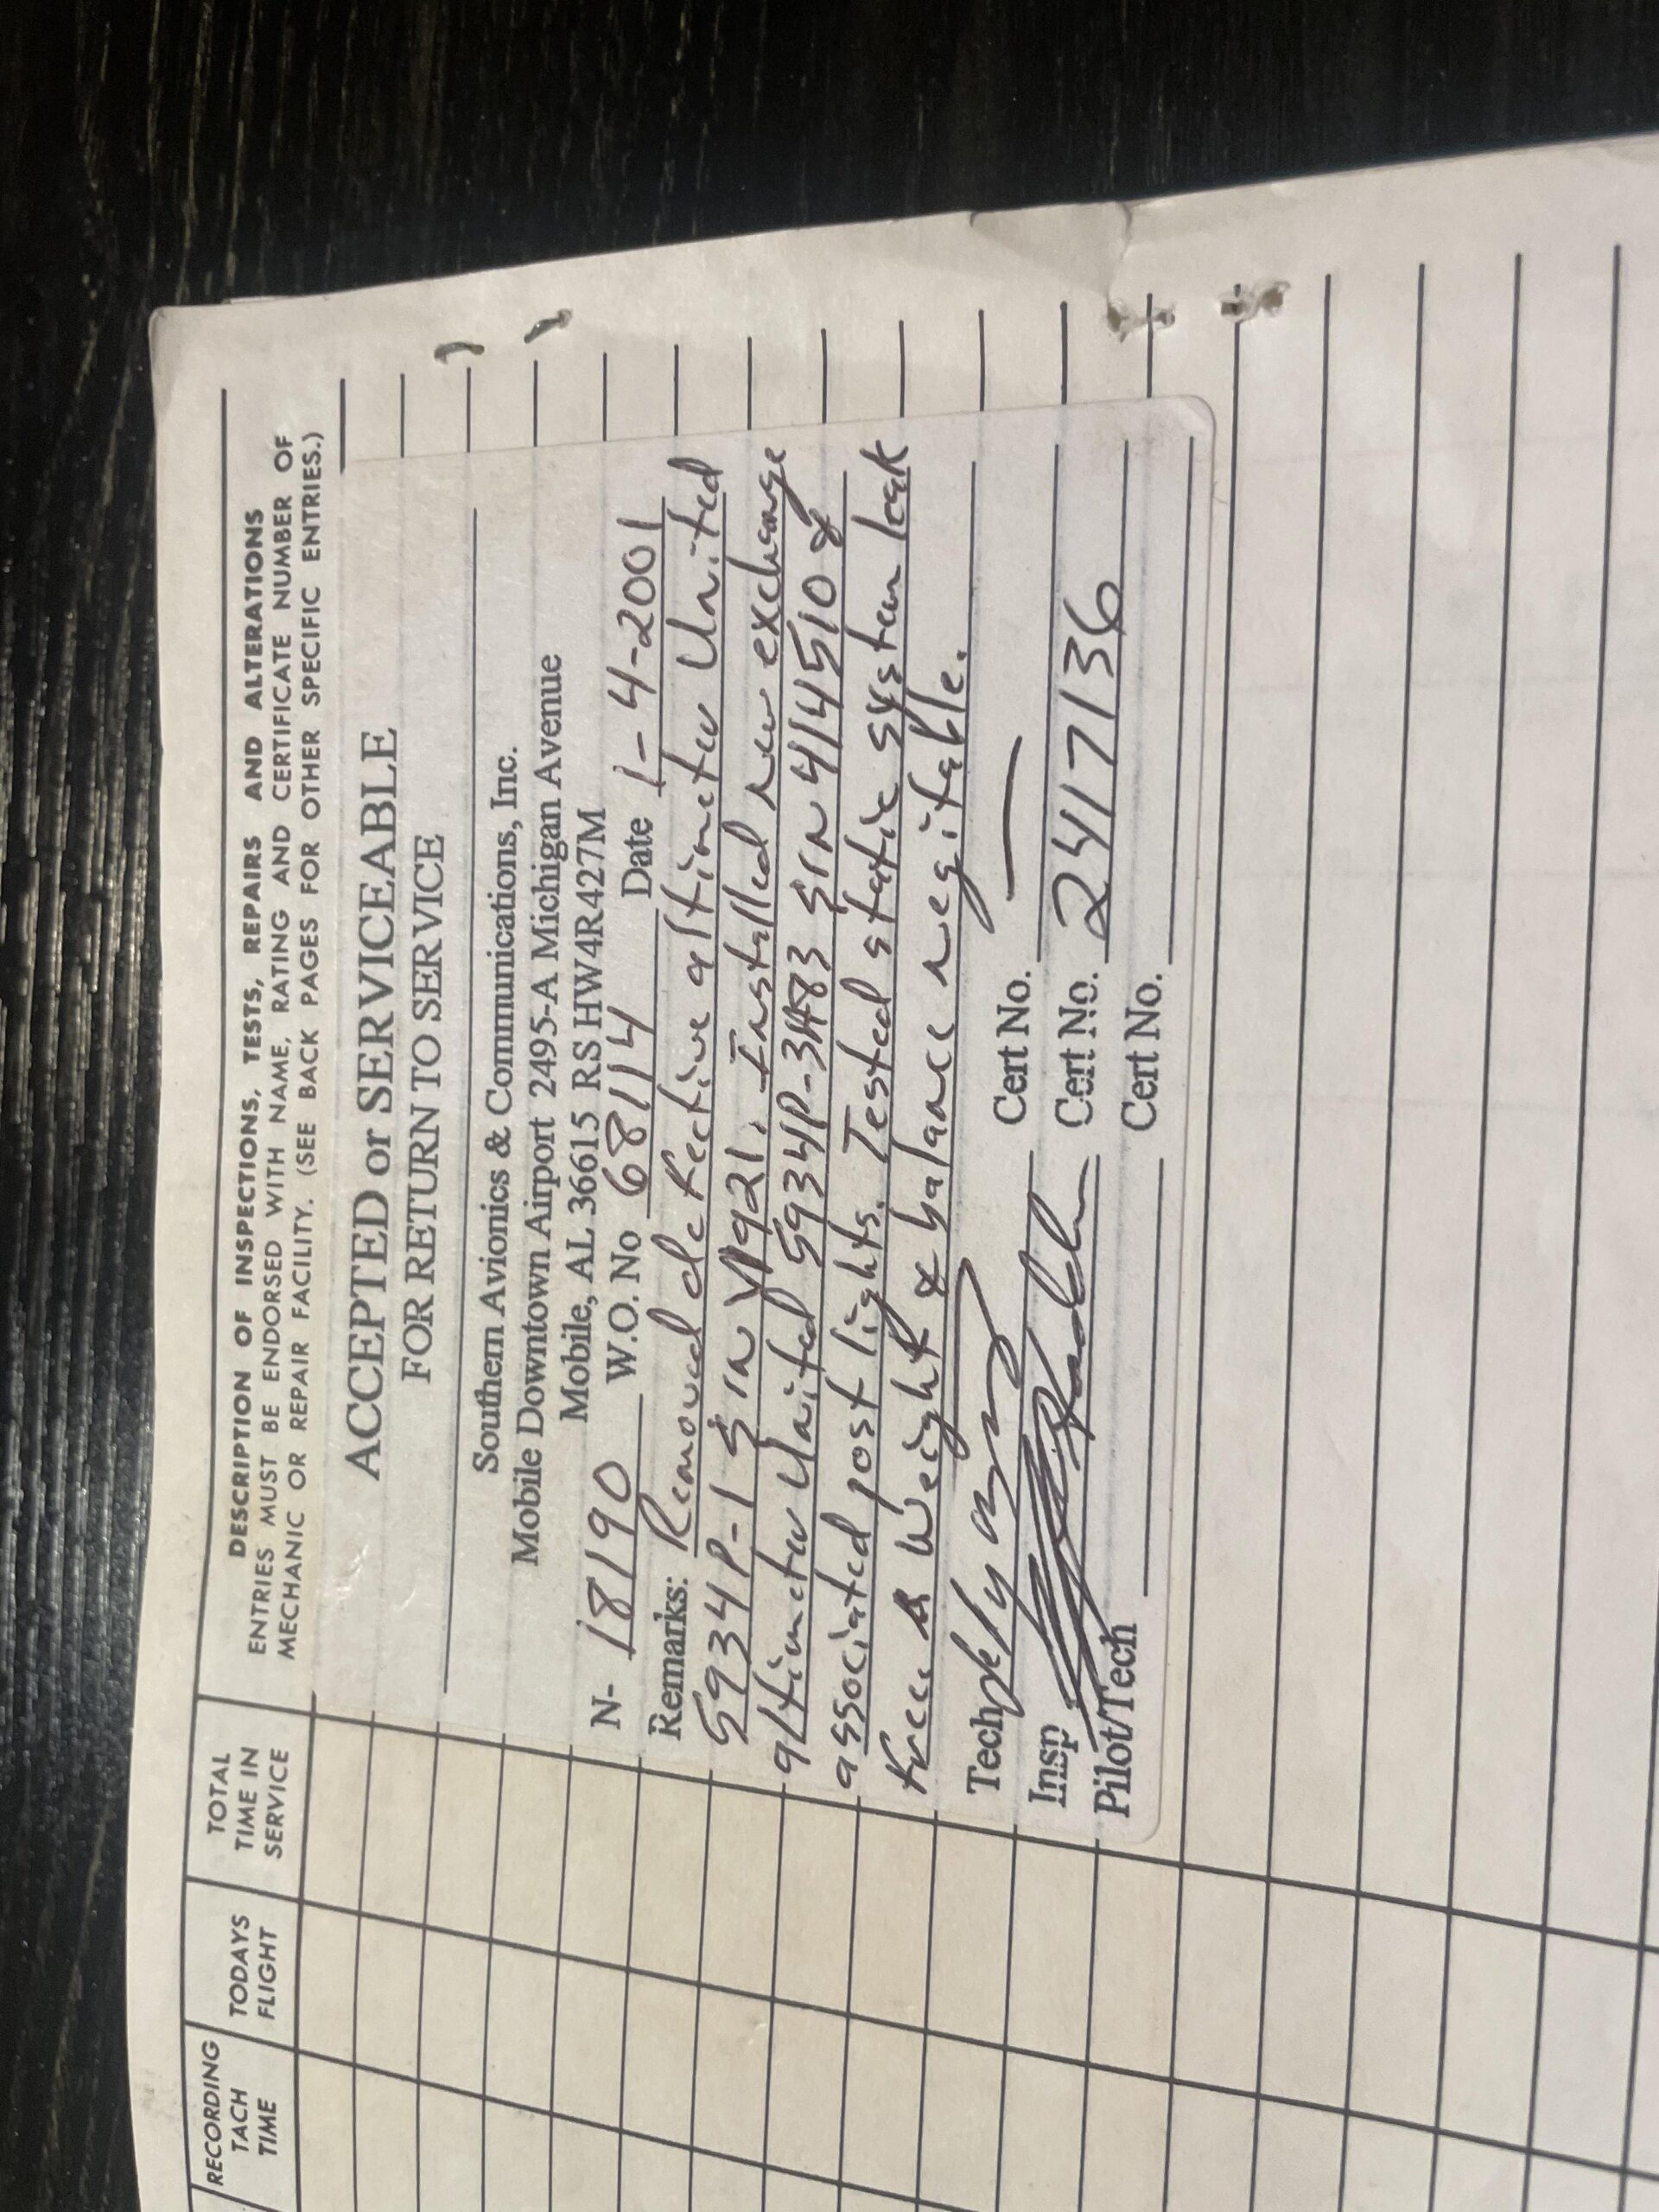 RECORDING TACH TIME
TODAYS FLIGHT
TOTAL TIME IN SERVICE
DESCRIPTION OF INSPECTIONS, TESTS, REPAIRS AND ALTERATIONS
ENTRIES MUST BE ENDORSED WITH NAME, RATING AND CERTIFICATE NUMBER OF
MECHANIC OR REPAIR FACILITY. (SEE BACK PAGES FOR OTHER SPECIFIC ENTRIES.)
ACCEPTED or SERVICEABLE
FOR RETURN TO SERVICE
Southern Avionics & Communications, Inc.
Mobile Downtown Airport 2495-A Michigan Avenue
Mobile, AL 36615 RS HW4R427M
N- 18190 W.O. No 68114 Date 1-4-2001
Remarks: Removed defective altimeter United
5934P-1 S/N V1921. Installed new exchange
altimeter United 5934P-3 A83 S/N 4145510 &
associated post lights. Tested static system leak
free & Weight & balance negitable.
Tech Cert No. —
Insp Cert No. 2417136
Pilot/Tech Cert No.